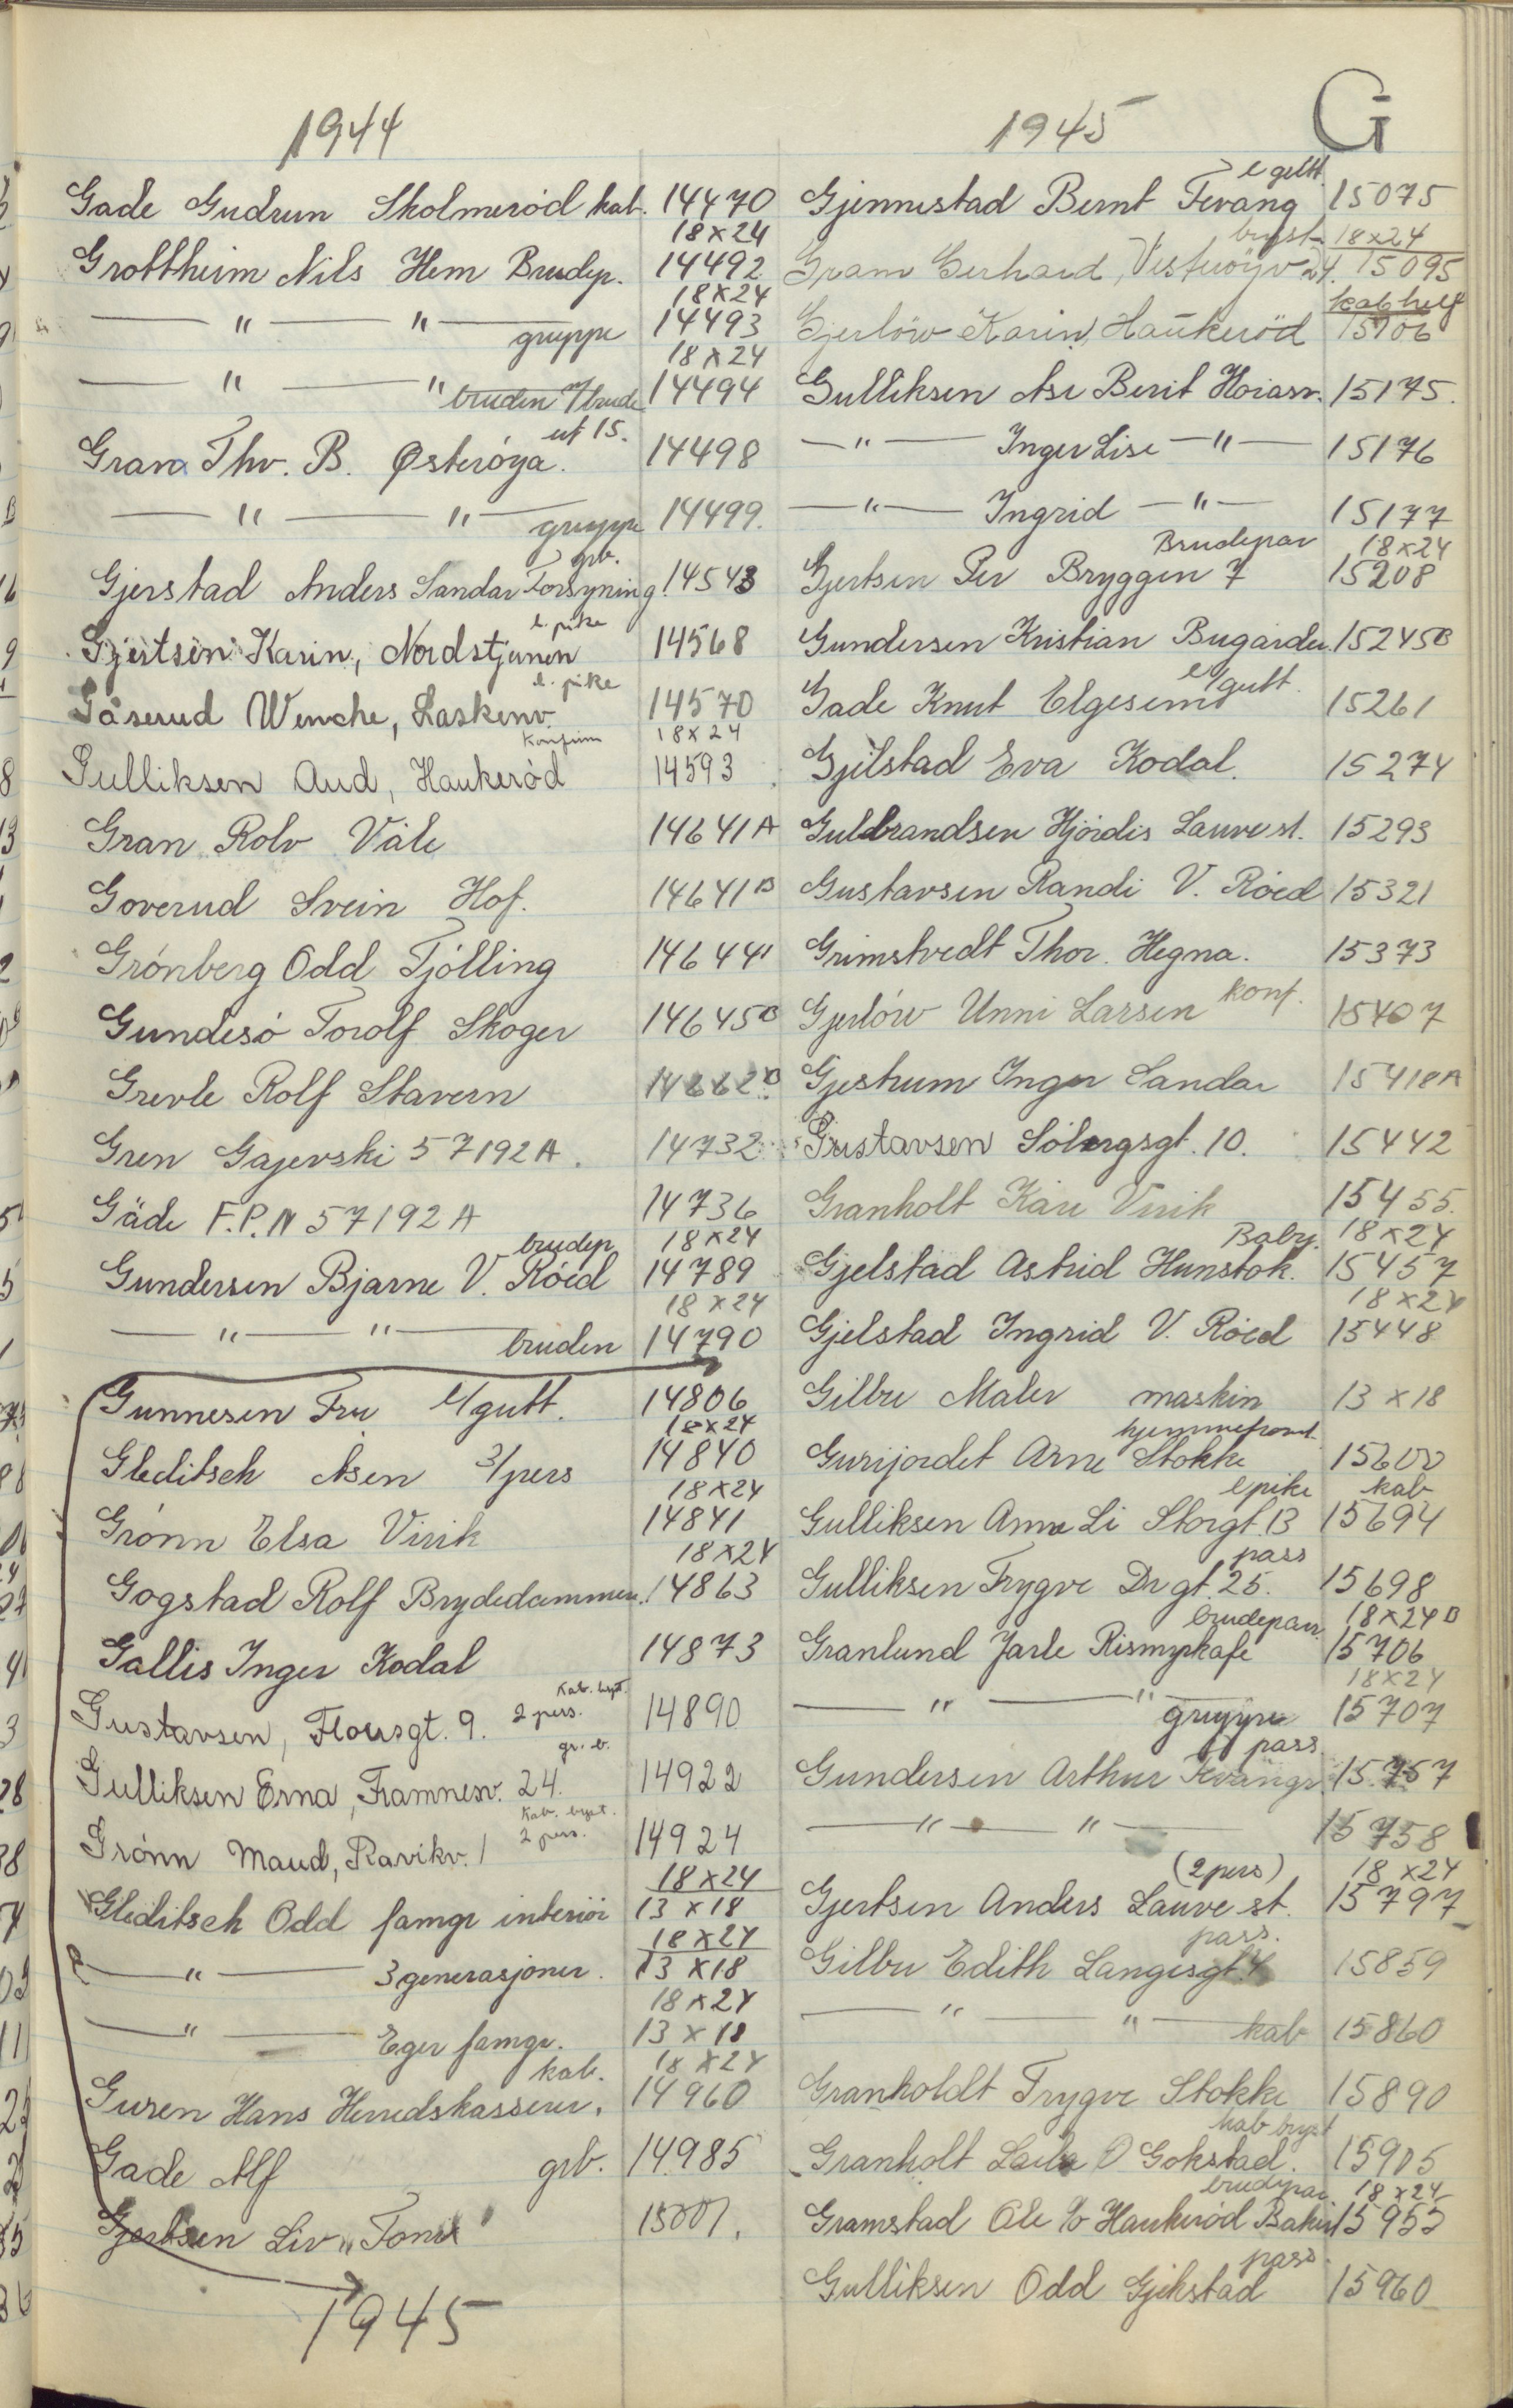 G
1944
Gade Gudrun Skolmerød kab. 14470
18x24
Grottheim Nils Hem Brudep. 14492
18x24
— " — " — gruppe 14493
18x24
— " — " bruden 7/brude 14494
ut 15.
Gran Thv. B. Østerøya. 14498
— " — " — gruppe 14499.
grb.
Gjerstad Anders Sandar Forsyning. 14543
l. pike
Gjertsen Karin, Nordstjernen 14568
l. pike
Gåserud Wenche, Laskenv. 14570
Konfirm 18x24
Gulliksen Aud, Haukerød 14593
Gran Rolv Våle 14641A
Goverud Svein Hof. 14641B
Grønberg Odd Tjølling 14644
Gundesø Torolf Skoger 14645B
Grevle Rolf Stavern 14662B
Gren Gajevski 57192A. 14732
Gäde F.P.N 57192A 14736
brudep 18x24
Gundersen Bjarne V. Røed 14789
18x24
— " — " — bruden 14790
Gunnesen Fru l/gutt. 14806
18x24
Gleditsch Asen 3/pers 14840
18x24
Grønn Elsa Virik 14841
18x24
Gogstad Rolf Brydedammen. 14863
Gallis Inger Kodal 14873
Kab. bryst.
Gustavsen, Floersgt. 9. 2 pers. 14890
gr. b.
Gulliksen Erna, Framnesv. 24. 14922
Kab. bryst.
Grønn Maud, Ravikv. 1 2 pers. 14924
18x24
Gleditsch Odd famgr interiör 13x18
18x24
— " — 3 generasjoner. 13x18
18x24
— " — Eger famgr. 13x18
kab. 18x24
Guren Hans Herredskasserer. 14960
Gade Alf grb. 14985
Gjertsen Liv "Tono" 15001.
1945
1945
l gutt.
Gjennestad Bernt Tevang 15075
bryst 18x24
Gram Gerhard, Vesterøyv 24. 15095
kab helf
Gjerløw Karin, Haukerød 15106
Gulliksen Ase Berit Hoiasv. 15175.
— " — Inger Lise — " — 15176
— " — Ingrid — " — 15177
Brudepar 18x24
Gjertsen Per Bryggen 7 15208
Gundersen Kristian Bugarden. 15245B
l/gutt.
Gade Knut Elgesem 15261
Gjelstad Eva Kodal. 15274
Gulbrandsen Hjørdis Lauve st. 15293
Gustavsen Randi V. Røed 15321
Grimstvedt Thor. Hegna. 15373
Gjerløw Unni Larsen konf. 15407
Gjestrum Inger Sandar 15418A
Gustavsen Sølbergsgt. 10. 15442
Granholt Kåre Virik 15455.
Baby. 18x24
Gjelstad Astrid Hunstok. 15457
18x24
Gjelstad Ingrid V. Røed 15448
Gilbu Maler maskin 13x18
hjemmefront
Gurijordet Arne Stokke 15600
l pike kab
Gulliksen Anne Li Storgt. 13 15694
pass
Gulliksen Trygve Dr gt. 25. 15698
brudepar 18x24B
Granlund Jarle Rismyrkafe 15706
18x24
— " — " — gruppe 15707
pass.
Gundersen Arthur 15757
— " — " — 15758
(2 pers) 18x24
Gjertsen Anders Lauve st. 15797
pass.
Gilbu Edith Langesgt. 4 15859
— " — " — kab 15860
Granholdt Trygve Stokke 15890
kab bryst
Granholt Laila Ø Gokstad. 15905
brudepar 18x24
Gramstad Ole c/o Haukerød Bakeri 15953
pass.
Gulliksen Odd Gjekstad 15960